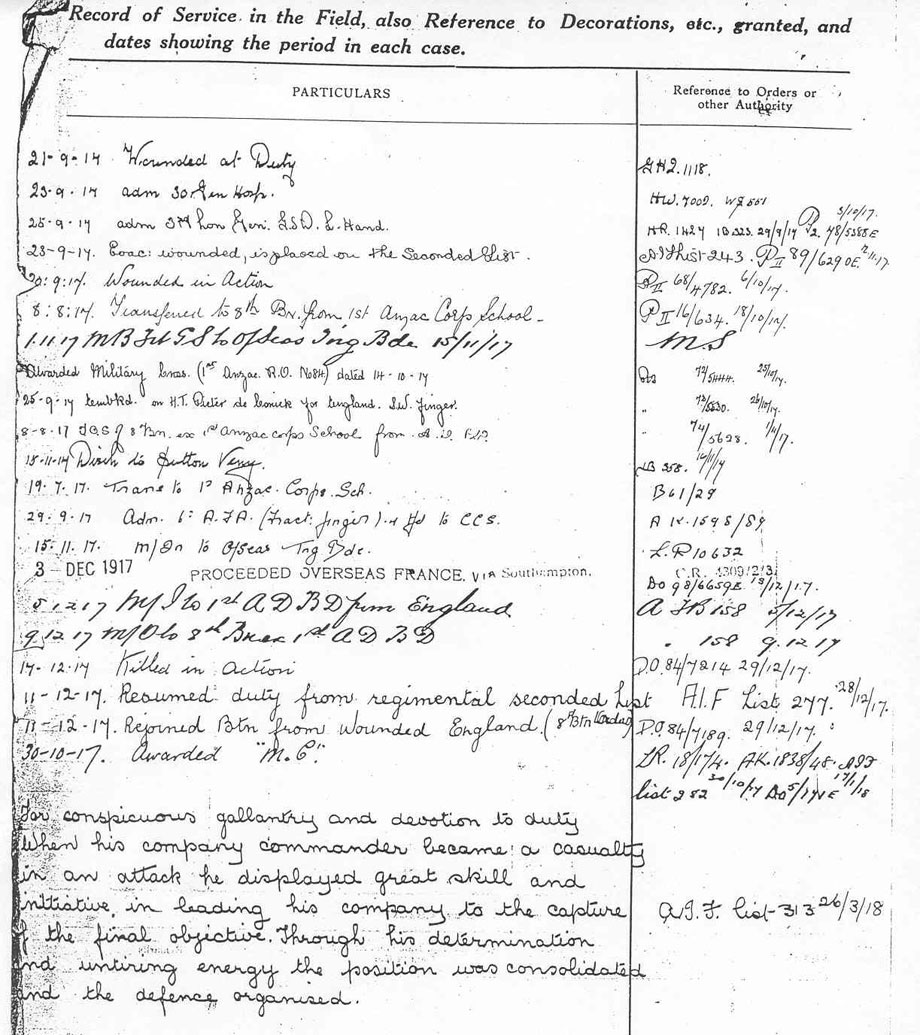 Record of Service in the Field, also Reference to Decorations, etc., granted, and
dates showing the period in each case.
PARTICULARS
Reference to Orders or
other Authority
21-9-17 Wounded at Duty
GHQ. 1118.
23-9-17 adm 30 Gen Hosp.
HW. 7009.
25-9-17 adm 3rd Lon Gen.
5/10/17.
23-9-17. Evac: wounded, is placed on the Seconded List.
AIF list 243. P II 89/629
Wounded in Action
P II 68/4782. 6/10/17.
8:8:17. Transferred to 8th Bn. from 1st Anzac Corps School -
P II 16/634. 18/10/17.
1.11.17 M B Fit G S to O/Seas Tng Bde 15/11/17
M.S
Awarded Military Cross. (1st Anzac. R.O. No84) dated 14-10-17
25-9-17 on H.T. Pieter de Connick for England. S.W. finger.
8-8-17 8 Bn. ex 1st Anzac corps School from
74/5628.
15-11-17 to Sutton Veny.
19-7-17. Trans to 1st Anzac. Corps. Sch.
B61/29
29-9-17 Adm. 6: A.F.A. (Fract. finger) to CCS.
A K.1598/89
15.11.17. M/In to O/Seas Tng Bde.
L.R 10632
3 - DEC 1917 PROCEEDED OVERSEAS FRANCE, VIA Southampton.
DO 98/6659E 13/12/17.
5.12.17 M/I to 1st A D B D from England
A FB 158 5/12/17
9.12 17 M/O to 8th Bn ex 1st A D B D
" 158 9.12 17
17-12-17 Killed in action
D.O.84/7214 29/12/17.
11-12-17. Resumed duty from regimental seconded list
A.I.F List 277. 28/12/17.
11-12-17. Rejoined Btn from wounded England. (8th Btn
D.O.84/7189. 29/12/17.
30-10-17. Awarded "M.C".
LR. 18/17/4. AK.1838/48.
list 282 30/10/17 17/1/18
For conspicuous gallantry and devotion to duty
When his company commander became a casualty
in an attack he displayed great skill and
initiative, in leading his company to the capture
of the final objective. Through his determination
and untiring energy the position was consolidated
and the defence organised.
A.I.F. list 313 26/3/18